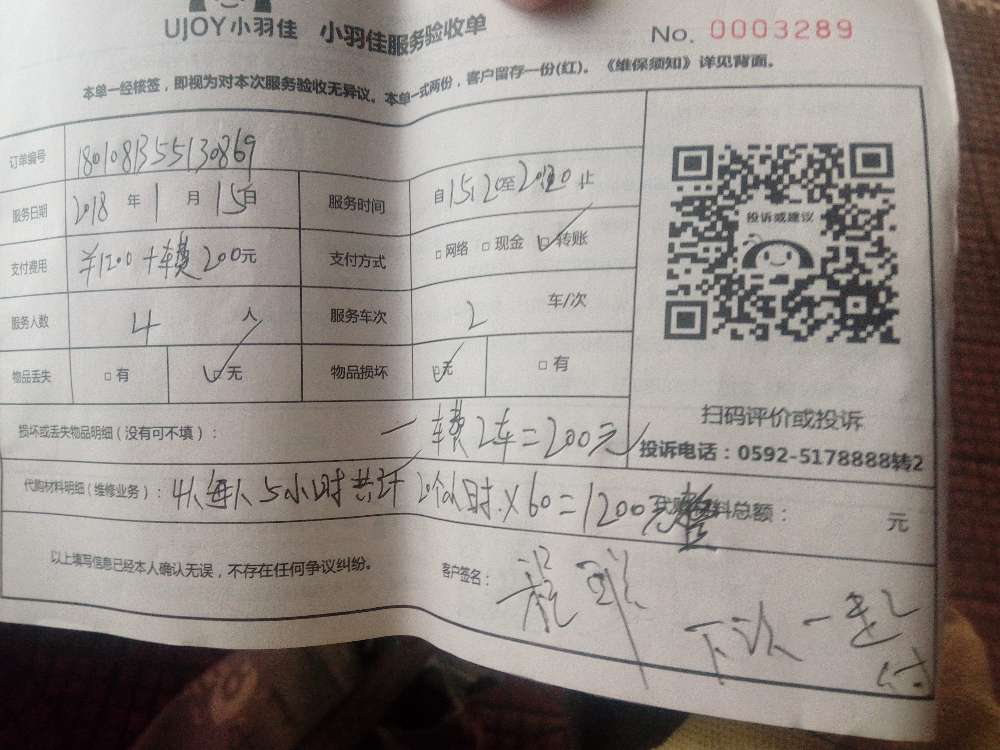 UJOY小羽佳 小羽佳服务验收单 No. 0003289
本单一经核签，即视为对本次服务验收无异议。本单一式两份，客户留存一份(红)。《维保须知》详见背面。
订单编号 1801081355130869
服务日期 2018 年 1 月 15日 服务时间 自15:20至20:20止
支付费用 ¥1200+车费200元 支付方式 □网络 □现金 □转账
服务人数 4 人 服务车次 2 车/次
物品丢失 □有 □无 物品损坏 □无 □有
投诉或建议
扫码评价或投诉
投诉电话：0592-5178888转2
损坏或丢失物品明细（没有可不填）： 一车费2车=200元
代购材料明细（维修业务）： 4人每人5小时共计20个小时×60=1200元整 代购材料总额： 元
以上填写信息已经本人确认无误，不存在任何争议纠纷。 客户签名：
下次一起付